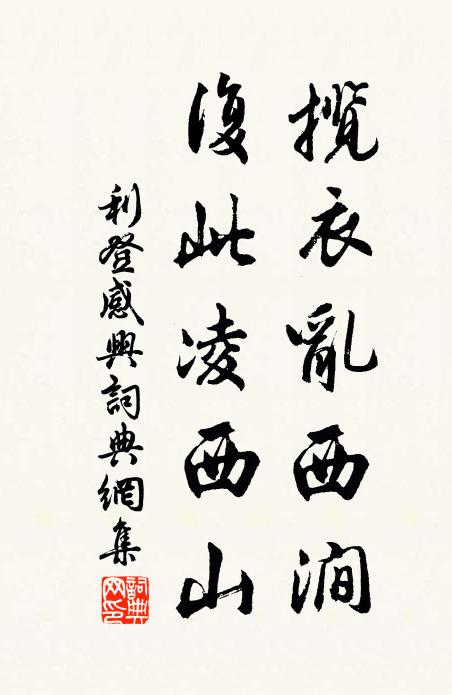 攬衣亂西澗
復此凌西山
利登感興詞典網集
詞典网印